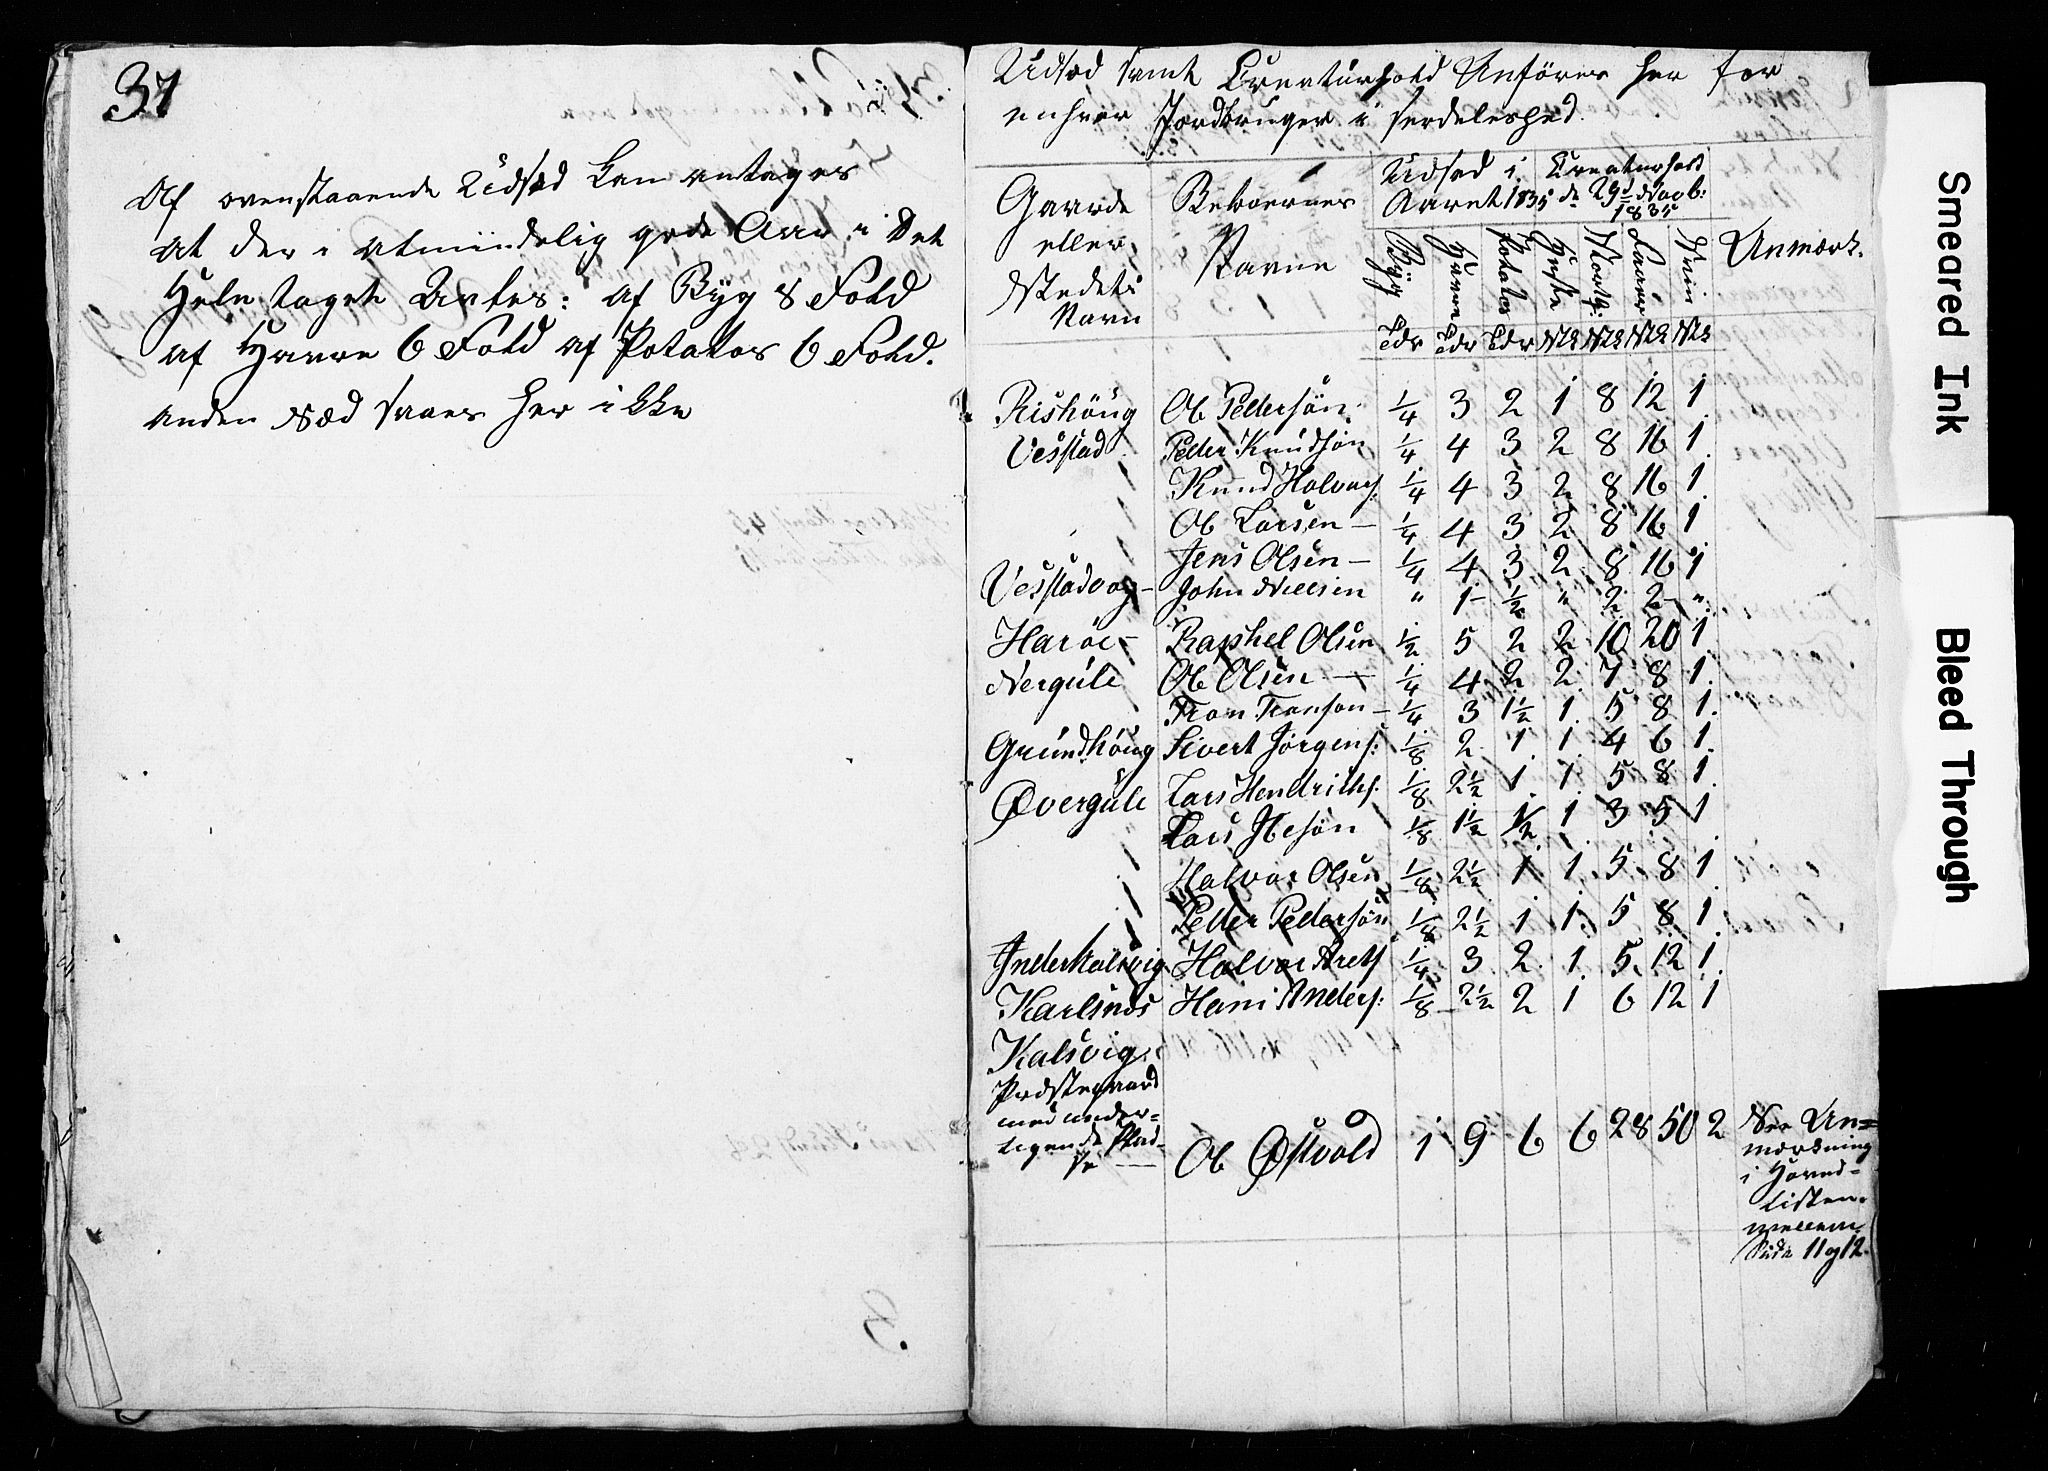 37
Af ovenstaaende Udsæd kan antages
at der i almindelig gode Aar i Det
Hele taget Avles: af Byg 8 Fold
af Havre 6 Fold af Potatos 6 Fold.
anden Sæd saaes her ikke
Udsæd samt Creaturhold Anföres her for
enhver Jordbruger i serdeleshed.
Gaarde eller Stedets Navn
Beboernes Navne
Udsæd i Aaret 1835
Creaturhold d. 29d Novb: 1835
Anmærk.
Byg Havre Potatos Heste Storfæ Faaer Sviin
Tdr Tdr Tdr Stk Stk Stk Stk
Rishöug Ole Pedersön 1/4 3 2 1 8 12 1
Vesstad Peder Knudsön 1/4 4 3 2 8 16 1
Knud Halvors: 1/4 4 3 2 8 16 1
Ole Larsen — 1/4 4 3 2 8 16 1
Jens Olsen — 1/4 4 3 2 8 16 1
Vesstadvog — John Nielsen " 1 — 1/2 " 2 2 — "
Harøe — Raphel Olsen 1/2 5 2 2 10 20 1
Nergule Ole Olsen — 1/4 4 2 2 7 8 1
Tron Tronson — 1/4 3 1 1/2 1 5 8 1
Grundhöug Sivert Jörgens: 1/8 2 1 1 4 6 1
Øvergule Lars Hendriks: 1/8 2 1/2 1 1 5 8 1
Lars 1/8 1 1/2 1/2 1 3 5 1
Halvor Olsen 1/8 2 1/2 1 1 5 8 1
Peder Pedersön 1/8 2 1/2 1 1 5 8 1
Inderkalsvig Halvor Arets 1/4 3 2 1 5 12 1
Karlsnes Hans Anders: 1/8 — 2 1/2 2 1 6 12 1
Kalsvig
Præstegaard
med under=
ligende Plad=
se —
Ole Østvold 1 9 6 6 28 50 2
See An=
mærkning
i Hoved=
Listen
mellem
Side 11 og 12.
Smeared Ink
Bleed Through